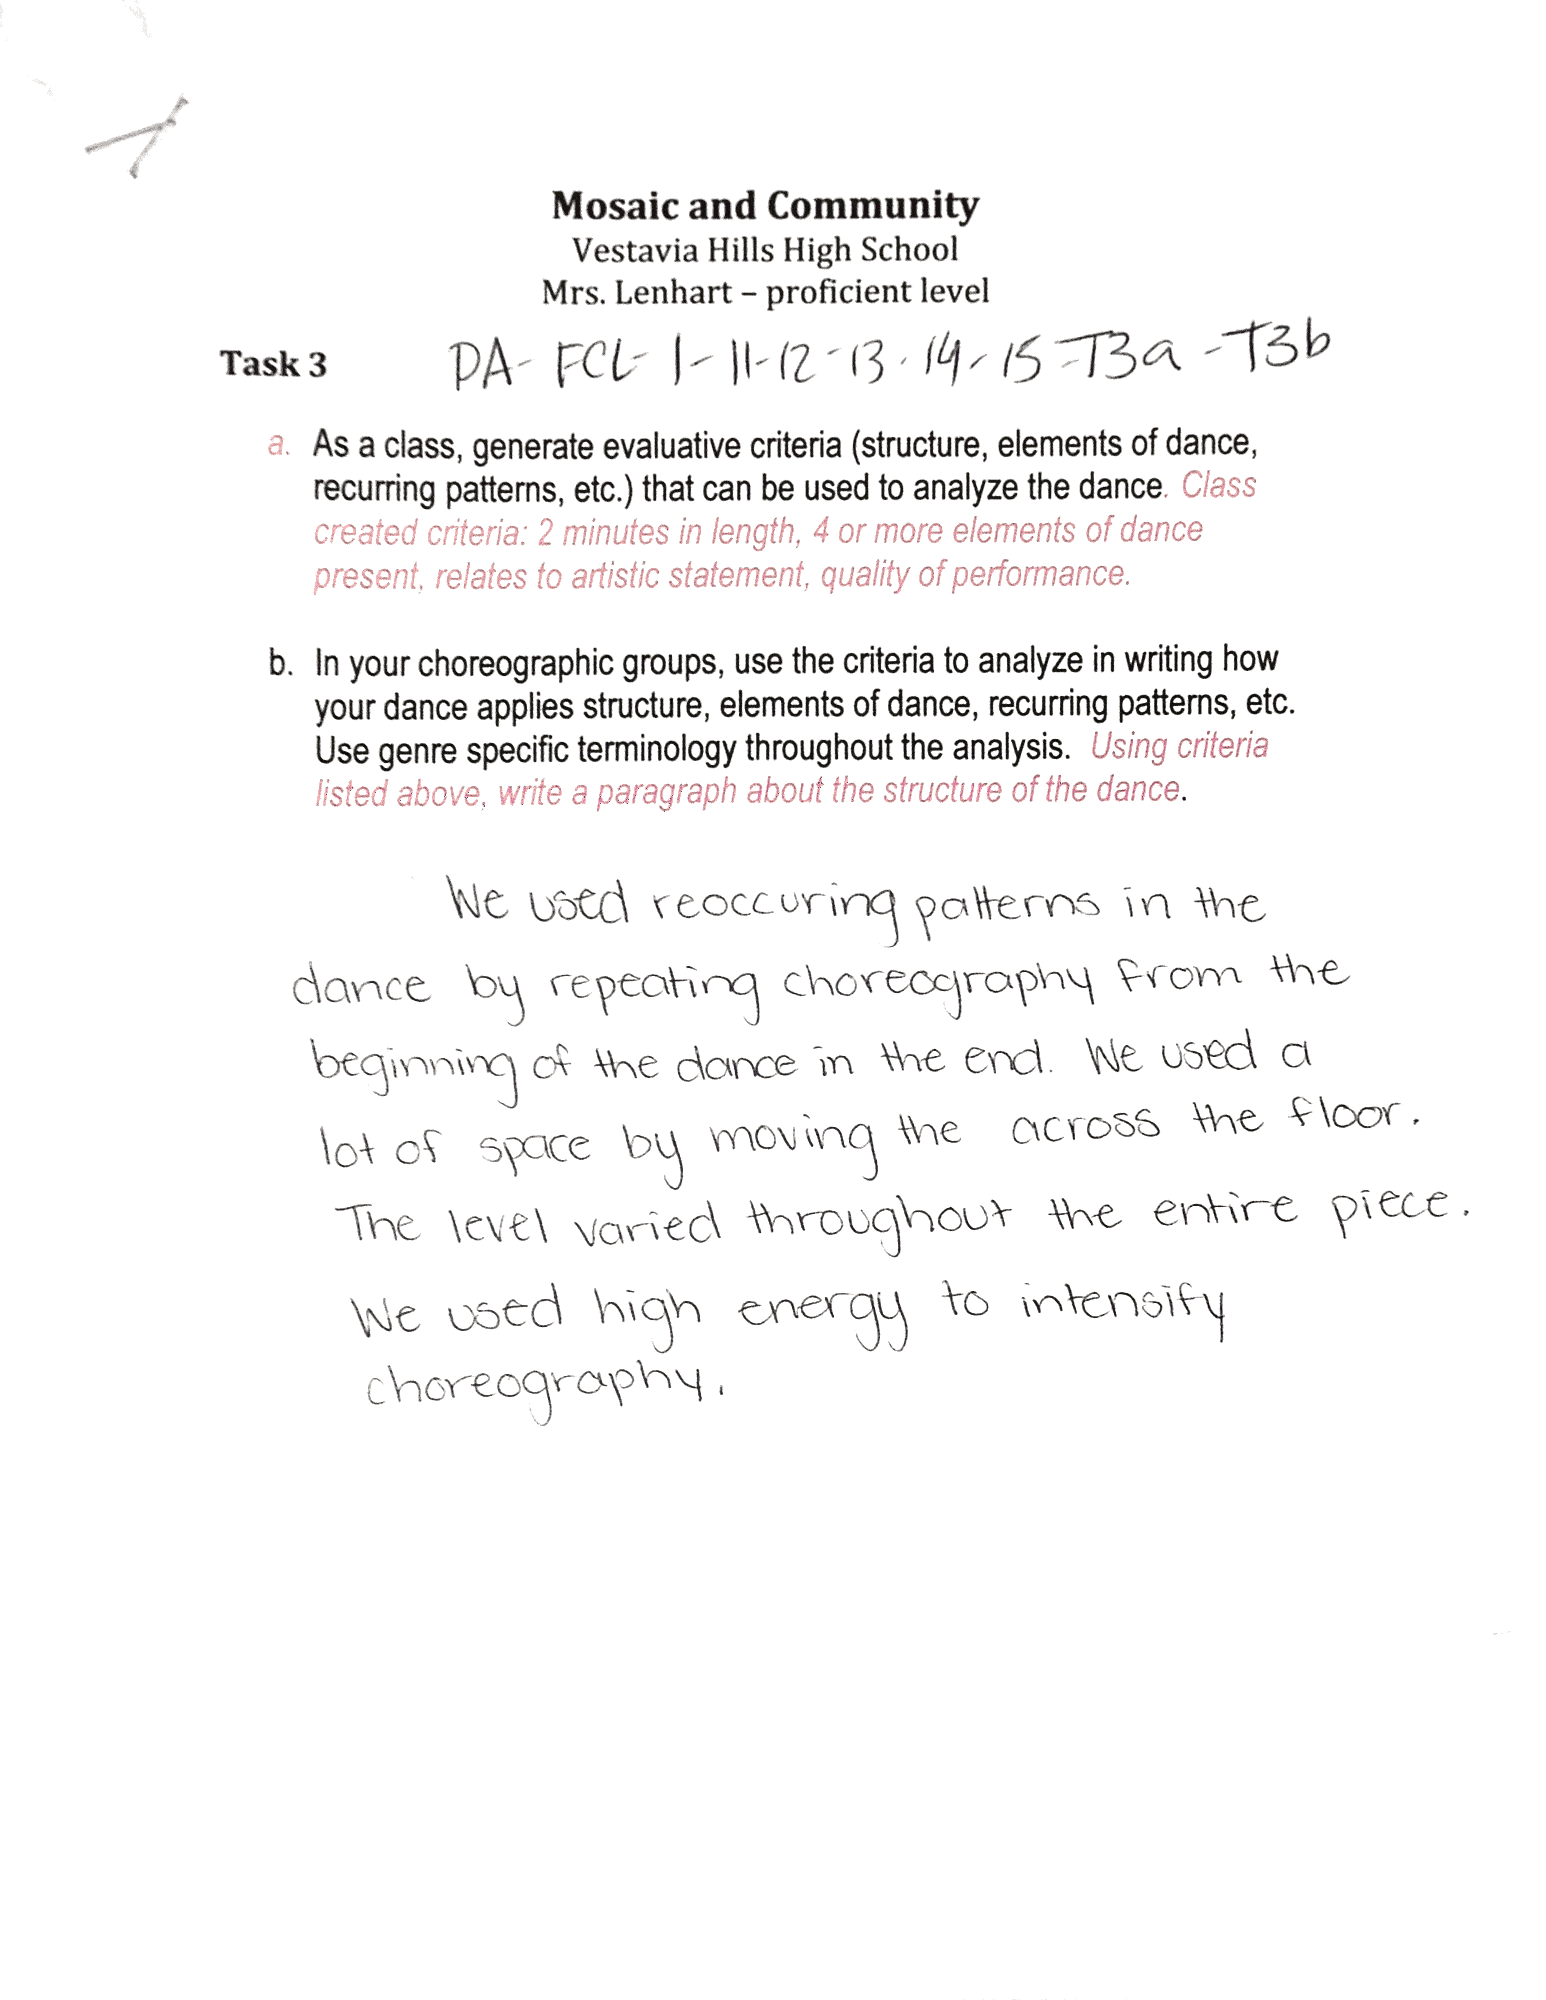 Mosaic and Community
Vestavia Hills High School
Mrs. Lenhart – proficient level
Task 3 DA-FCL-1-11-12-13-14-15-T3a-T3b
a. As a class, generate evaluative criteria (structure, elements of dance,
recurring patterns, etc.) that can be used to analyze the dance. Class
created criteria: 2 minutes in length, 4 or more elements of dance
present, relates to artistic statement, quality of performance.
b. In your choreographic groups, use the criteria to analyze in writing how
your dance applies structure, elements of dance, recurring patterns, etc.
Use genre specific terminology throughout the analysis. Using criteria
listed above, write a paragraph about the structure of the dance.
We used reoccuring patterns in the
dance by repeating choreography from the
beginning of the dance in the end. We used a
lot of space by moving the across the floor.
The level varied throughout the entire piece.
We used high energy to intensify
choreography.